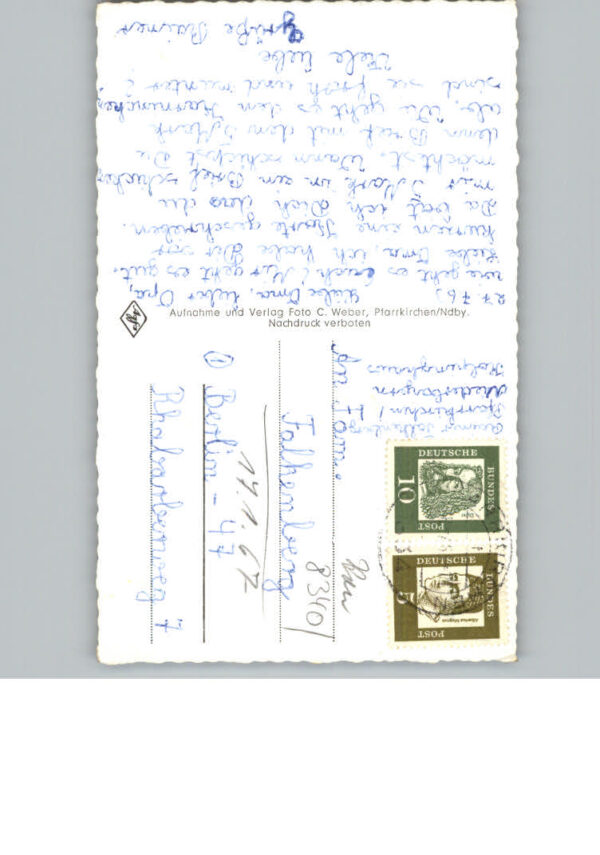 27.7.63
Liebe Oma, lieber Opa,
wie geht es euch? Mir geht es gut.
Liebe Oma, ich habe dir vor
kurzem eine Karte geschrieben.
Da bat ich Dich das du
mir Mark in ein Brief schicken
möchtest. Wann schickst du
denn Brief mit dem Mark
ab. Wie geht es dem Kaninchen,
sind sie froh und munter?
Viele liebe
Grüße Rainer
Aufnahme und Verlag Foto C. Weber, Pfarrkirchen/Ndby.
Nachdruck verboten
Falkenberg
Pfarrkirchen /
Niederbayern
Kolpinghaus
An Fam.
Falkenberg
8340/
17.1.67
① Berlin - 47
Rhabarberweg 7
DEUTSCHE
BUNDES
POST
10
DEUTSCHE
BUNDES
POST
5
Albertus Magnus